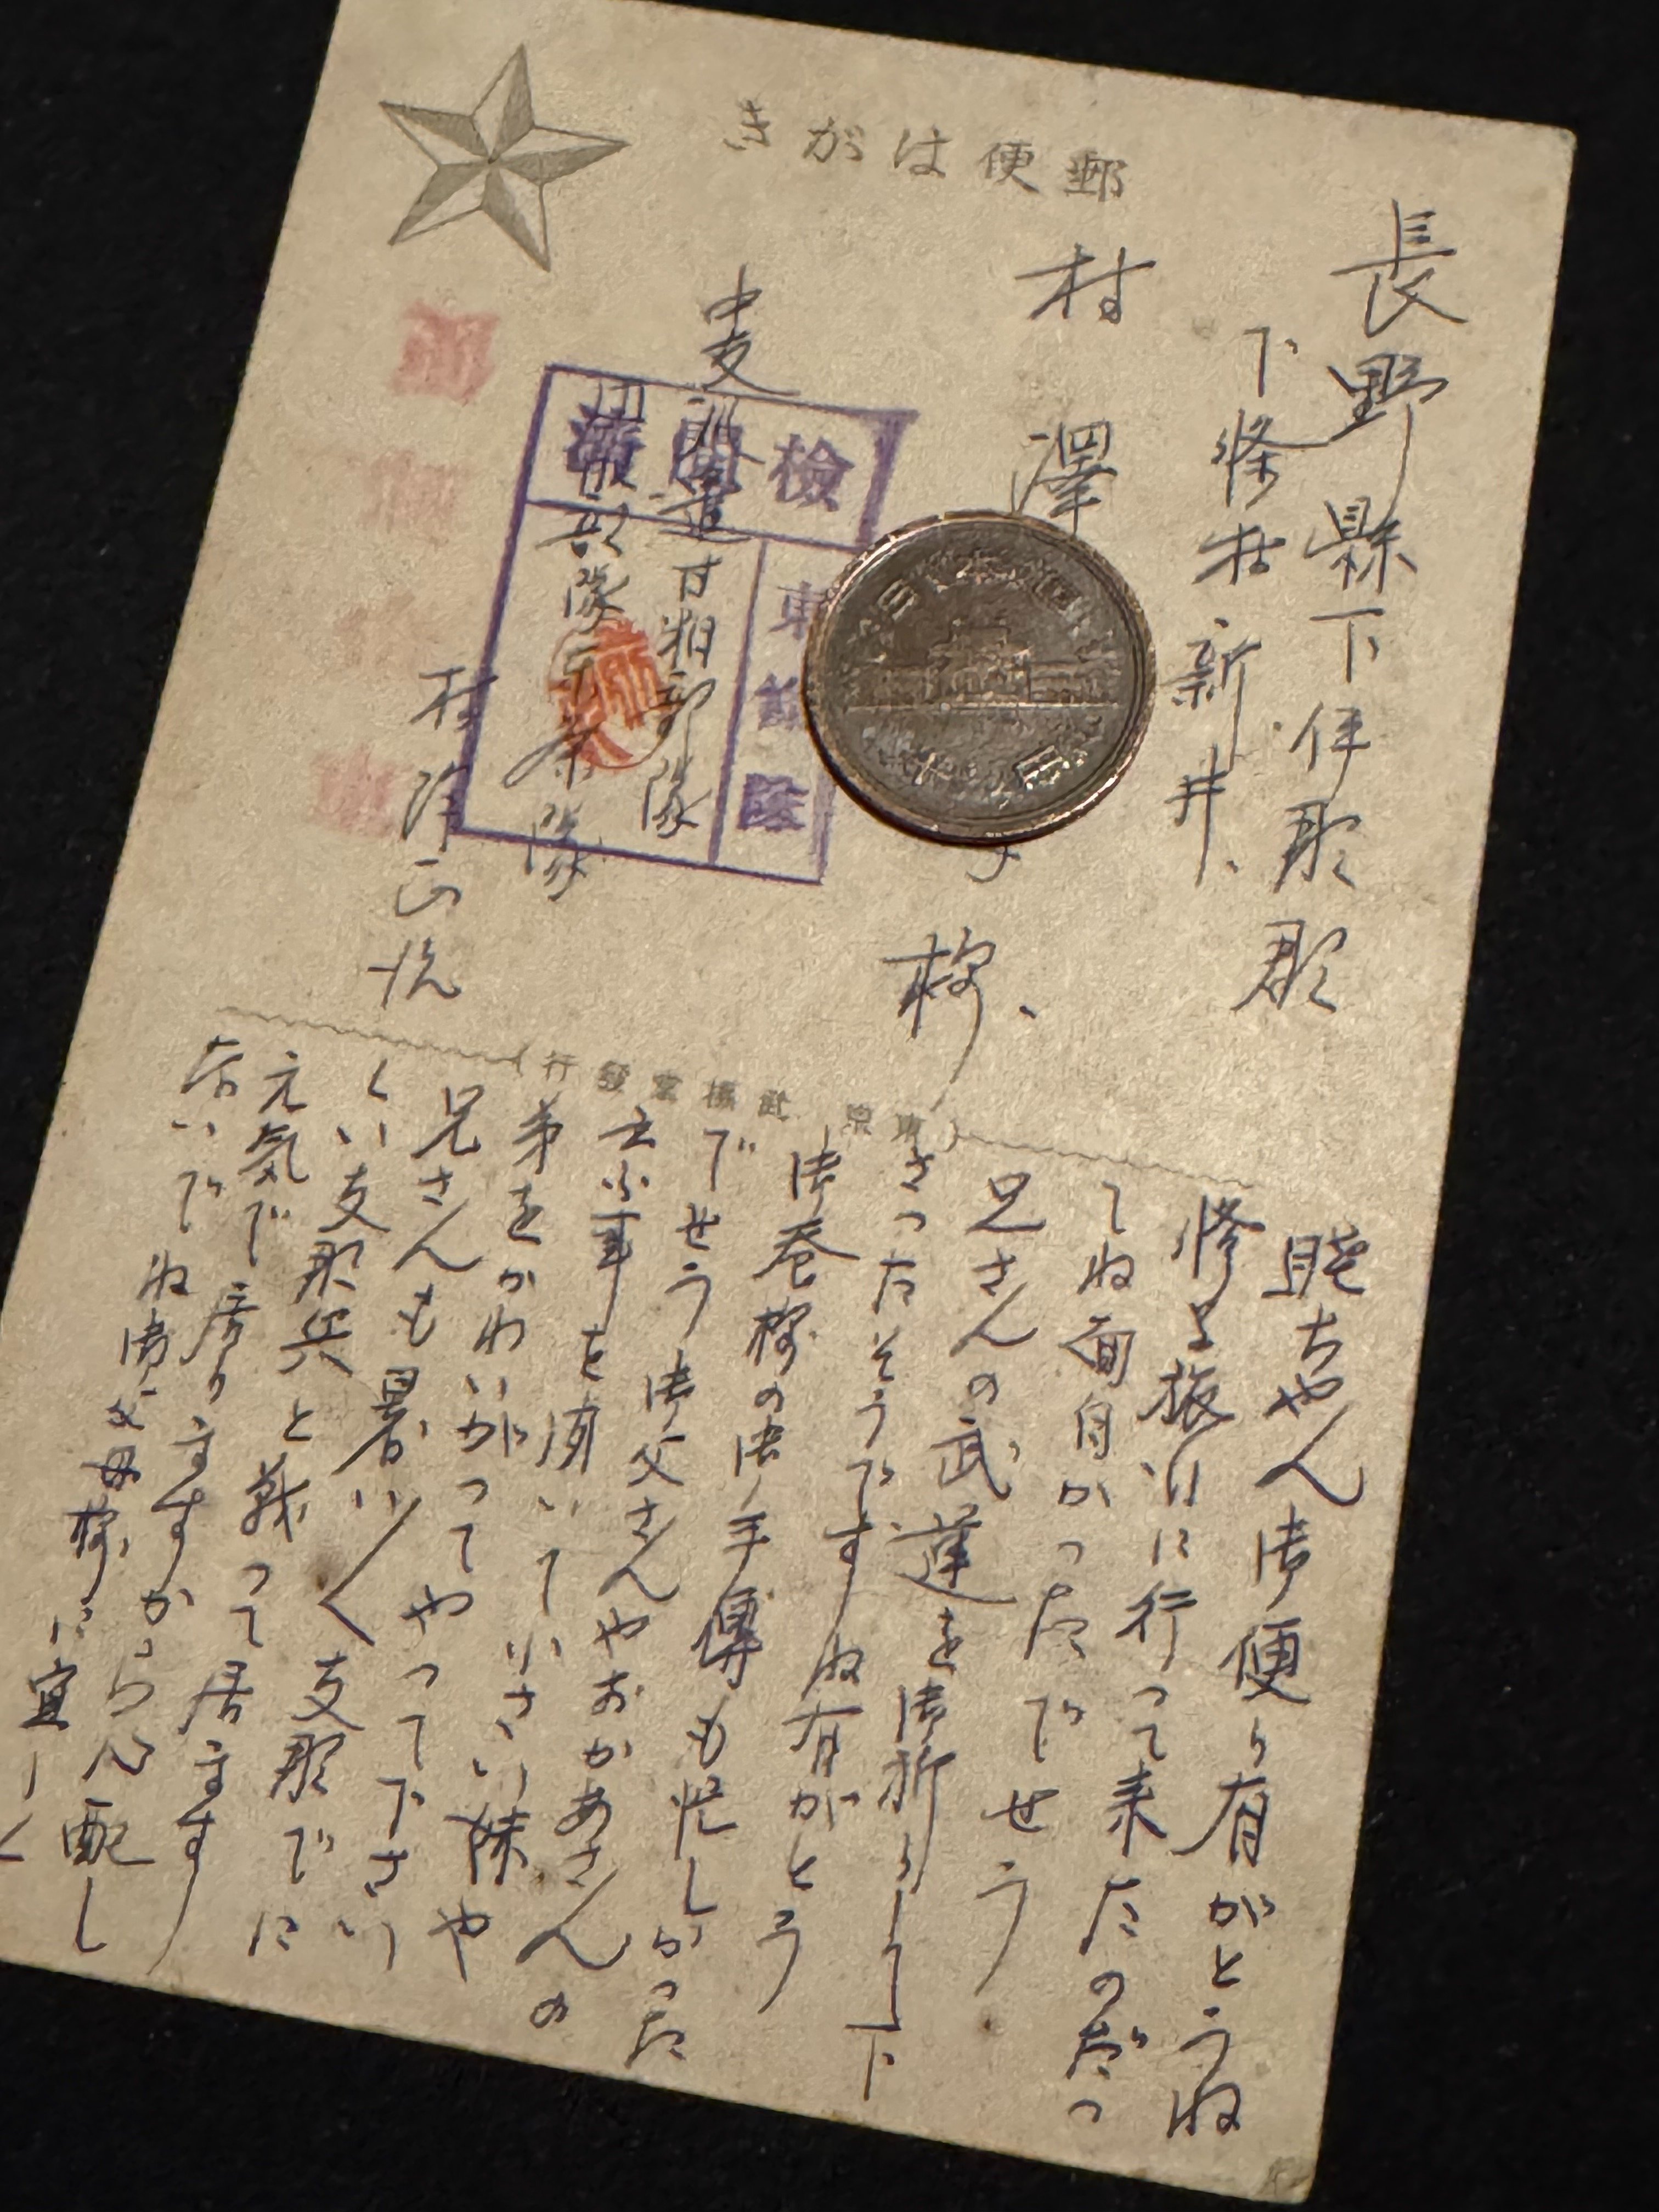 郵便はがき
長野縣下伊那郡
下條村新井、
村澤
様、
中支派遣甘粕部隊
部隊
隊
村澤
検閲済
東京 發行
ちやん御便り有がとうね
修学旅行に行って来たのだつ
てね面白かったでせう
兄さんの武運を御祈りして下
さつたそうですね有がとう
御蚕様の御手傳も忙しかつた
でせう御父さんやおかあさんの
云ふ事を聞いて小さい妹や
弟をかわいがってやって下さい
兄さんも暑い〱支那でに
くい支那兵と戦って居ます
元気で居りますから心配し
ないでね御父母様に宜しく
日本国
十円